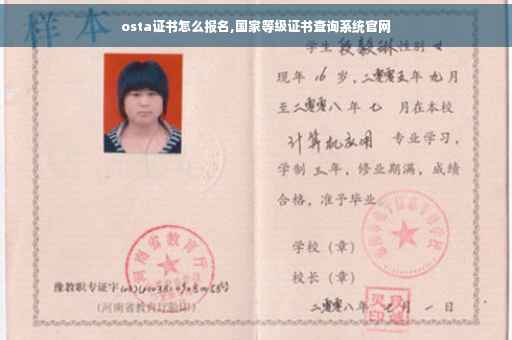 osta证书怎么报名,国家等级证书查询系统官网
样本
学生段毅琳性别 女
现年 16 岁,二零零五年 九 月
至二零零八 年 七 月在本校
计算机应用 专业学习,
学制 三 年,修业期满,成绩
合格,准予毕业
学校(章)
校长(章)
二零零八年 月 一 日
河南省教育厅
豫教职专证字
(河南省教育厅验印)